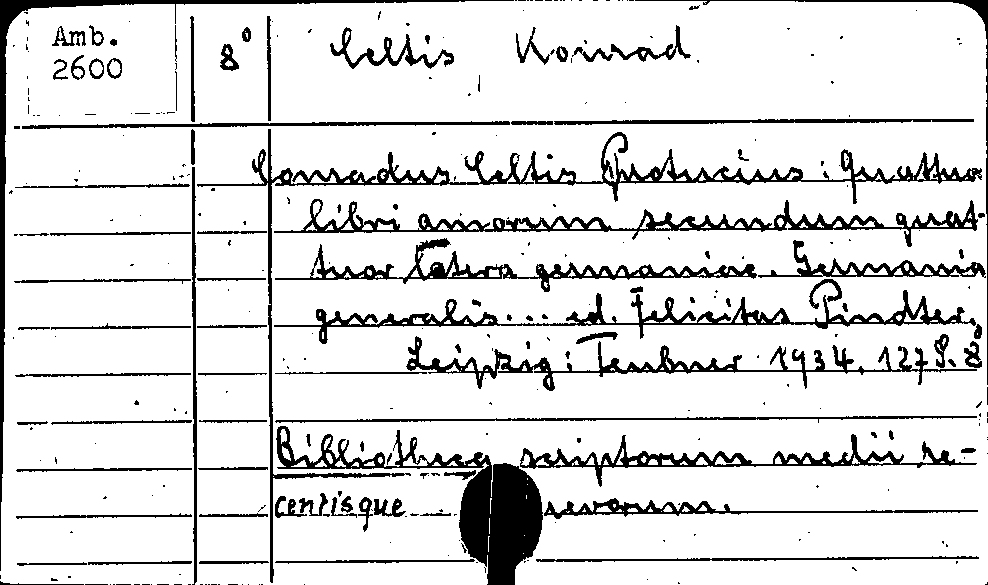 Amb.
2600
8° Celtis Konrad
Conradus Celtis Protucius: Quattuor
libri amorum secundum quat-
tuor latera germaniae. Germania
generalis... ed. Felicitas Pindter.
Leipzig: Teubner 1934. 127 S. 8
Bibliotheca scriptorum medii re-
centisque aevorum.